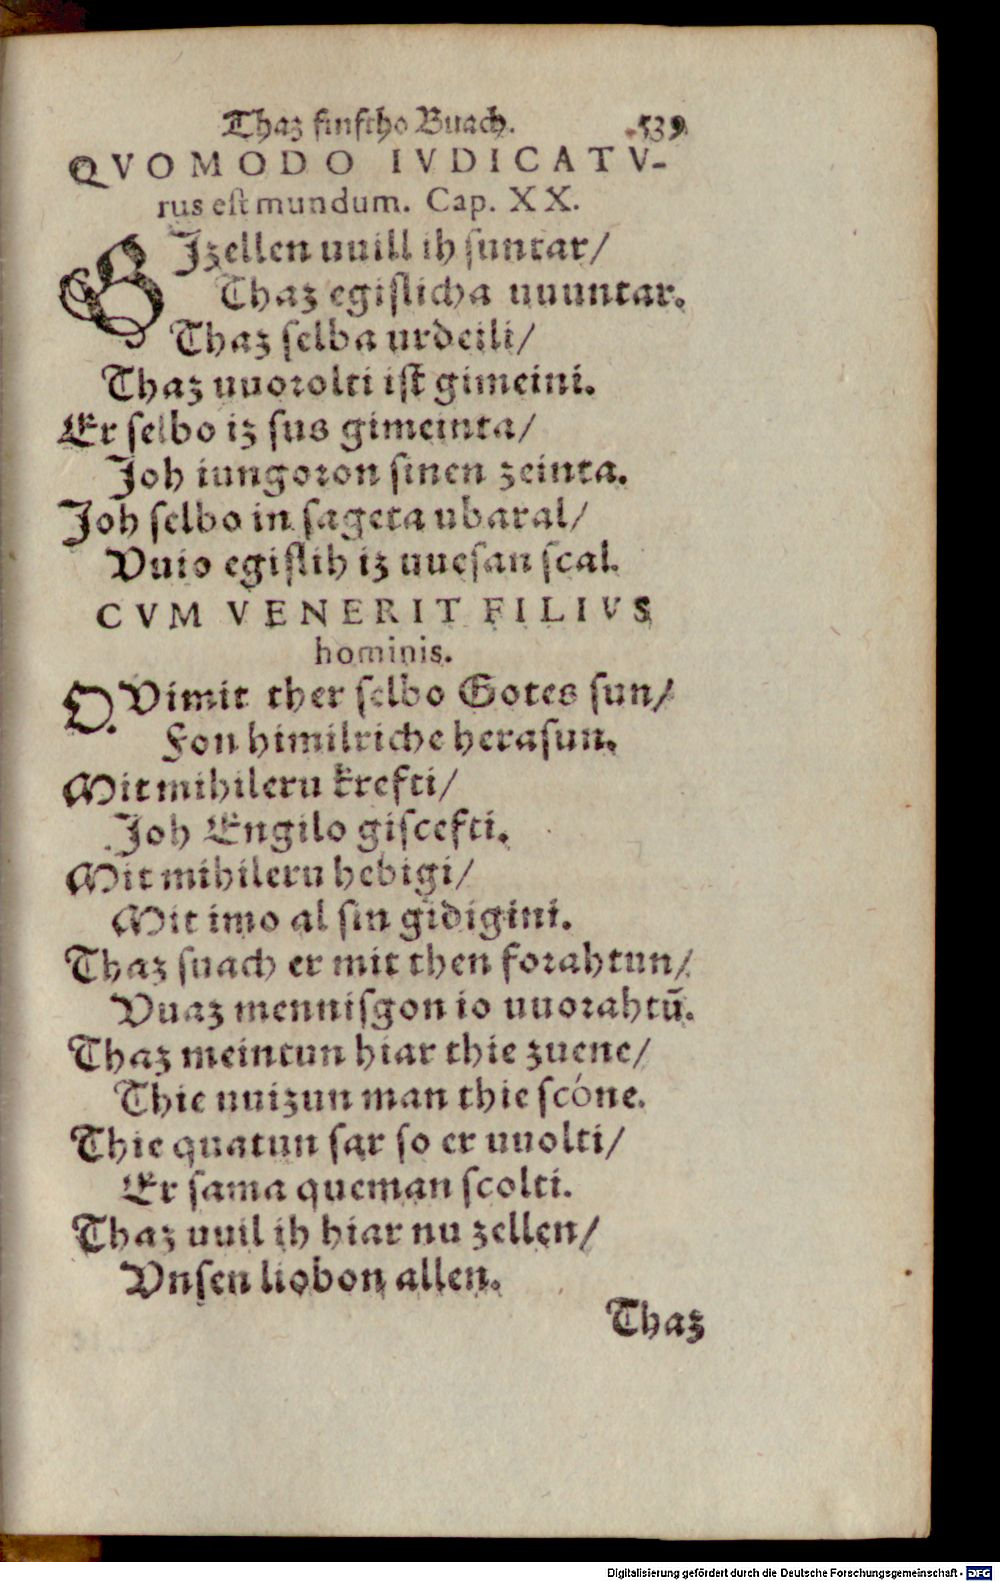 Thaz finftho Buach. 539
QVOMODO IVDICATV-
rus est mundum. Cap. XX.
GJzellen uuill ih suntar/
Thaz egislicha uuuntar.
Thaz selba urdeili/
Thaz uuorolti ist gimeini.
Er selbo iz sus gimeinta/
Joh iungoron sinen zeinta.
Joh selbo in sageta ubaral/
Vuio egislih iz uuesan scal.
CVM VENERIT FILIVS
hominis.
QVimit ther selbo Gotes sun/
Fon himilriche herasun.
Mit mihileru krefti/
Joh Engilo giscefti.
Mit mihileru hebigi/
Mit imo al sin gidigini.
Thaz suach er mit then forahtun/
Vuaz mennisgon io uuorahtũ.
Thaz meintun hiar thie zuene/
Thie uuizun man thie scóne.
Thie quatun sar so er uuolti/
Er sama queman scolti.
Thaz uuil ih hiar nu zellen/
Vnsen liobon allen.
Thaz
Digitalisierung gefördert durch die Deutsche Forschungsgemeinschaft - DFG